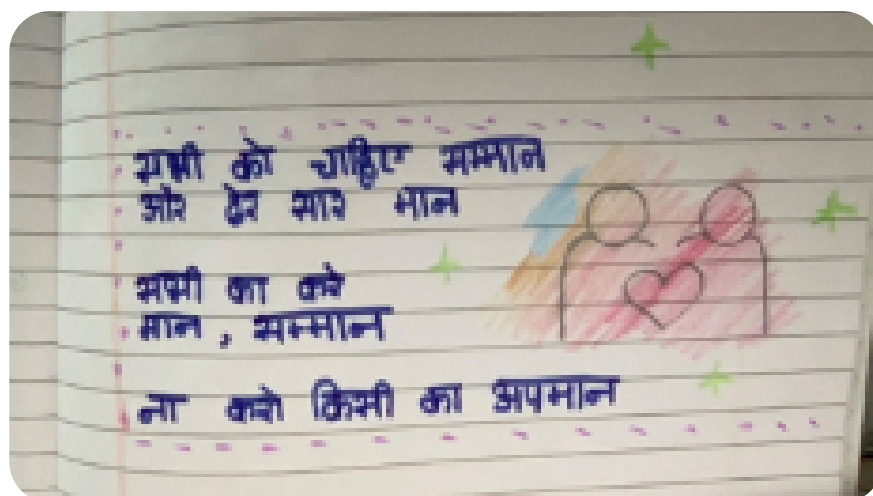 सभी को चाहिए सम्मान
और ढेर सार मान
सभी का करे
मान, सम्मान
ना करो किसी का अपमान